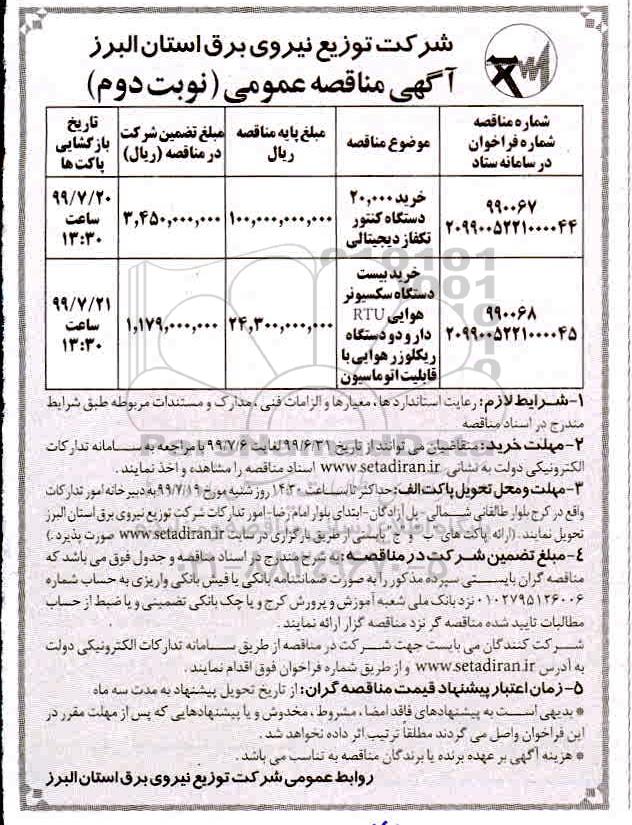 شرکت توزیع نیروی برق استان البرز
آگهی مناقصه عمومی (نوبت دوم)
شماره مناقصه شماره فراخوان در سامانه ستاد
موضوع مناقصه
مبلغ پایه مناقصه ریال
مبلغ تضمین شرکت در مناقصه (ریال)
تاریخ بازگشایی پاکت ها
۹۹۰۰۶۷
۲۰۹۹۰۰۵۲۲۱۰۰۰۰۴۴
خرید ۲۰,۰۰۰ دستگاه کنتور تکفاز دیجیتالی
۱۰۰,۰۰۰,۰۰۰,۰۰۰
۳,۴۵۰,۰۰۰,۰۰۰
۹۹/۷/۲۰ ساعت ۱۳:۳۰
۹۹۰۰۶۸
۲۰۹۹۰۰۵۲۲۱۰۰۰۰۴۵
خرید بیست دستگاه سکسیونر هوایی RTU دار و دو دستگاه ریکلوزر هوایی با قابلیت اتوماسیون
۲۴,۳۰۰,۰۰۰,۰۰۰
۱,۱۷۹,۰۰۰,۰۰۰
۹۹/۷/۲۱ ساعت ۱۳:۳۰
۱-شرایط لازم: رعایت استانداردها، معیارها و الزامات فنی، مدارک و مستندات مربوطه طبق شرایط
مندرج در اسناد مناقصه
۲-مهلت خرید: متقاضیان می توانند از تاریخ ۹۹/۶/۳۱ لغایت ۹۹/۷/۶ با مراجعه به سامانه تدارکات
الکترونیکی دولت به نشانی www.setadiran.ir اسناد مناقصه را مشاهده و اخذ نمایند.
۳-مهلت ومحل تحویل پاکت الف: حداکثر تا ساعت ۱۴:۳۰ روز شنبه مورخ ۹۹/۷/۱۹ به دبیرخانه امور تدارکات
واقع در کرج بلوار طالقانی شمالی- پل آزادگان-ابتدای بلوار امام رضا-امور تدارکات شرکت توزیع نیروی برق استان البرز
تحویل نمایند. (ارائه پاکت های "ب" و "ج" بایستی از طریق بارگزاری در سایت www.setadiran.ir صورت پذیرد.)
۴-مبلغ تضمین شرکت در مناقصه: به شرح مندرج در اسناد مناقصه و جدول فوق می باشد که
مناقصه گران بایستی سپرده مذکور را به صورت ضمانتنامه بانکی یا فیش بانکی واریزی به حساب شماره
۰۱۰۲۷۹۵۱۲۶۰۰۶ نزد بانک ملی شعبه آموزش و پرورش کرج و یا چک بانکی تضمینی و یا ضبط از حساب
مطالبات تایید شده مناقصه گر نزد مناقصه گزار ارائه نمایند.
شرکت کنندگان می بایست جهت شرکت در مناقصه از طریق سامانه تدارکات الکترونیکی دولت
به آدرس www.setadiran.ir و از طریق شماره فراخوان فوق اقدام نمایند.
۵-زمان اعتبار پیشنهاد قیمت مناقصه گران: از تاریخ تحویل پیشنهاد به مدت سه ماه
* بدیهی است به پیشنهادهای فاقد امضا، مشروط، مخدوش و یا پیشنهادهایی که پس از مهلت مقرر در
این فراخوان واصل می گردند مطلقاً ترتیب اثر داده نخواهد شد.
* هزینه آگهی بر عهده برنده یا برندگان مناقصه به تناسب می باشد.
روابط عمومی شرکت توزیع نیروی برق استان البرز